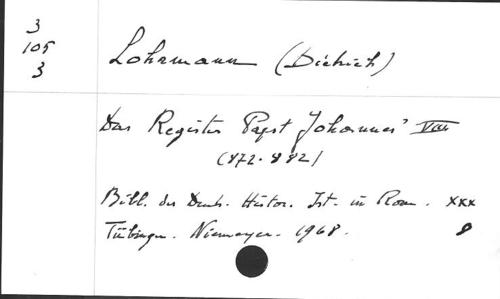 3
105
3
Lohrmann (Dietrich)
Das Register Papst Johannes' VIII
(872-882)
Bibl. des Deuts. Histor. Ist. in Rom. xxx
Tübingen. Niemeyer. 1968. 8